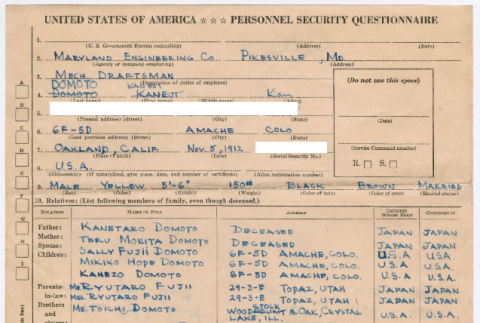 UNITED STATES OF AMERICA ☆ ☆ ☆ PERSONNEL SECURITY QUESTIONNAIRE
1.
(U. S. Government Bureau requesting) (Address) (Date)
2. MARYLAND ENGINEERING CO. PIKESVILLE, MD.
(Agency or company employing) (Address)
3. MECH. DRAFTSMAN
(Description of duties of employee)
DOMOTO
4. DOMOTO KANEJI
(Last name) (First name) (Middle name)
(Do not use this space)
5.
(Present address) (Street) (City) (State)
6. 6F-5D AMACHE COLO
(Last previous address) (Street) (City) (State)
7. OAKLAND, CALIF NOV. 5, 1912
(Place of birth) (Date) (Social Security No.)
(Service Command number)
8. U.S.A.
(Citizenship) (If naturalized, give place, date, and number of certificate) (Alien registration number)
R. S.
9. MALE YELLOW 5'-6" 150# BLACK BROWN MARRIED
(Sex) (Color) (Height) (Weight) (Color of hair)
10. Relatives: (List following members of family, even though deceased.)
RELATION NAME IN FULL ADDRESS COUNTRY WHERE BORN CITIZENSHIP
Father: KANETARO DOMOTO DECEASED JAPAN JAPAN
Mother: TERU MORITA DOMOTO DECEASED JAPAN JAPAN
Spouse: SALLY FUJII DOMOTO 6F-5D AMACHE, COLO. U.S.A USA
Children: MIKIKO HOPE DOMOTO 6F-5D AMACHE, COLO. U.S.A. U.S.A.
KANEZO DOMOTO 6F-5D AMACHE, COLO. U.S.A. U.S.A.
Parents-in-law: MR. RYUTARO FUJII 29-3-E TOPAZ, UTAH JAPAN JAPAN
MRS. RYUTARO FUJII 29-3-E TOPAZ, UTAH JAPAN JAPAN
Brothers and MR. TOICHI DOMOTO & OAK, CRYSTAL LAKE, ILL. U.S.A. U.S.A.
A
B
C
D
E
F